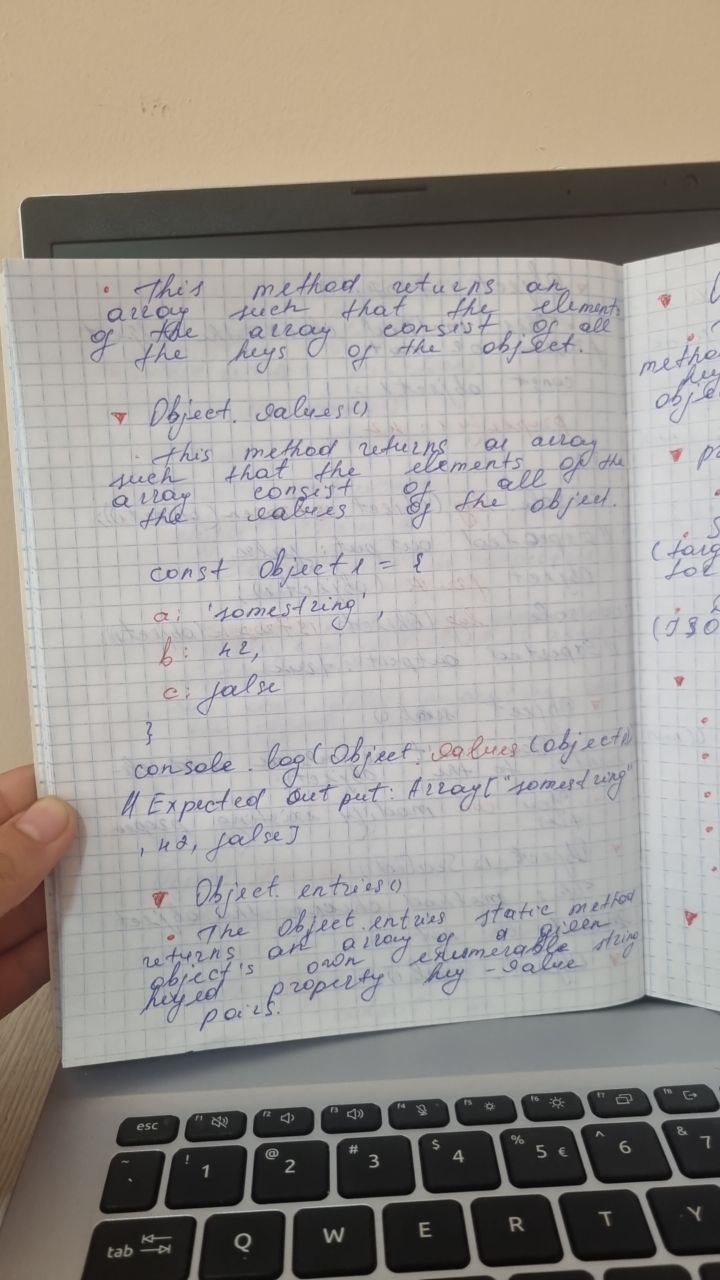 • This method returns an
array such that the elements
of the array consist of all
the keys of the object.
Object.values()
• This method returns as array
such that the elements of the
array consist of all
the values of the object.
const Object1 = {
a: 'somestring',
b: 42,
c: false
}
console.log(Object.values(object1))
// Expected Output: Array["somestring"
, 42, false]
Object.entries()
• The Object.entries static method
returns an array of a given
object's own enumerable string
keyed property key-value
pairs.
metho
key
obje
pr
(targ
for
(ISO
esc
F1
F2
F3
F4
F5
F6
F7
F8
~ `
! 1
@ 2
# 3
$ 4
% 5 €
^ 6
& 7
tab
Q
W
E
R
T
Y